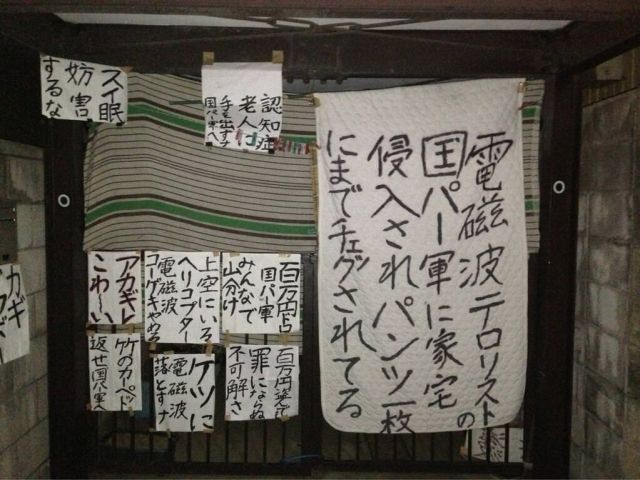 電磁波テロリストの
国パー軍に家宅
侵入されパンツ一枚
にまでチェグされてる
認知症
老人に
手を出すな
国パー軍へ
スイ眠
妨害
するな
百万円ドロ
国パー軍
みんなで
山分け
上空にいる
ヘリコプター
電磁波
コーゲキやめろ
アカギレ
こわーい
百万円盗んで
罪にならぬ
不可解さ
ケツに
電磁波
落とすナ
竹のカーペット
返せ国パー軍へ
カギ